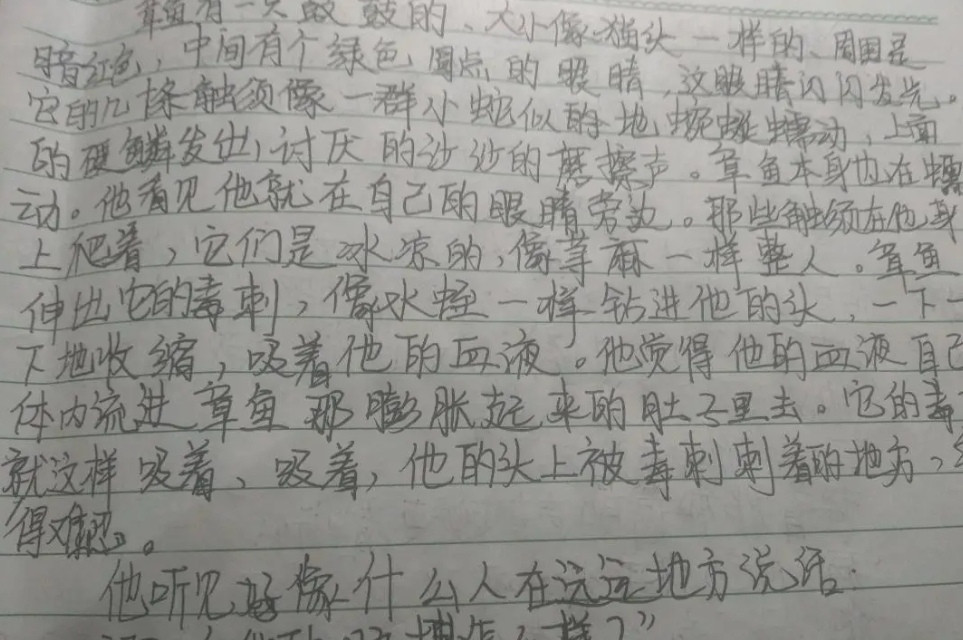 章鱼有一只鼓鼓的、大小像猫头一样的、周围是
暗红色，中间有个绿色圆点的眼睛，这眼睛闪闪发光。
它的几条触须像一群小蛇似的地蜿蜒蠕动，上面
的硬鳞发出讨厌的沙沙的磨擦声。章鱼本身也在蠕
动。他看见他就在自己的眼睛旁边。那些触须在他身
上爬着，它们是冰凉的，像荨麻一样螫人。章鱼
伸出它的毒刺，像水蛭一样钻进他的头，一下一
下地收缩，吸着他的血液。他觉得他的血液自己
体内流进章鱼那膨胀起来的肚子里去。它的毒
就这样吸着、吸着，他的头上被毒刺刺着的地方，
得难忍。
他听见好像什么人在远远地方说话：